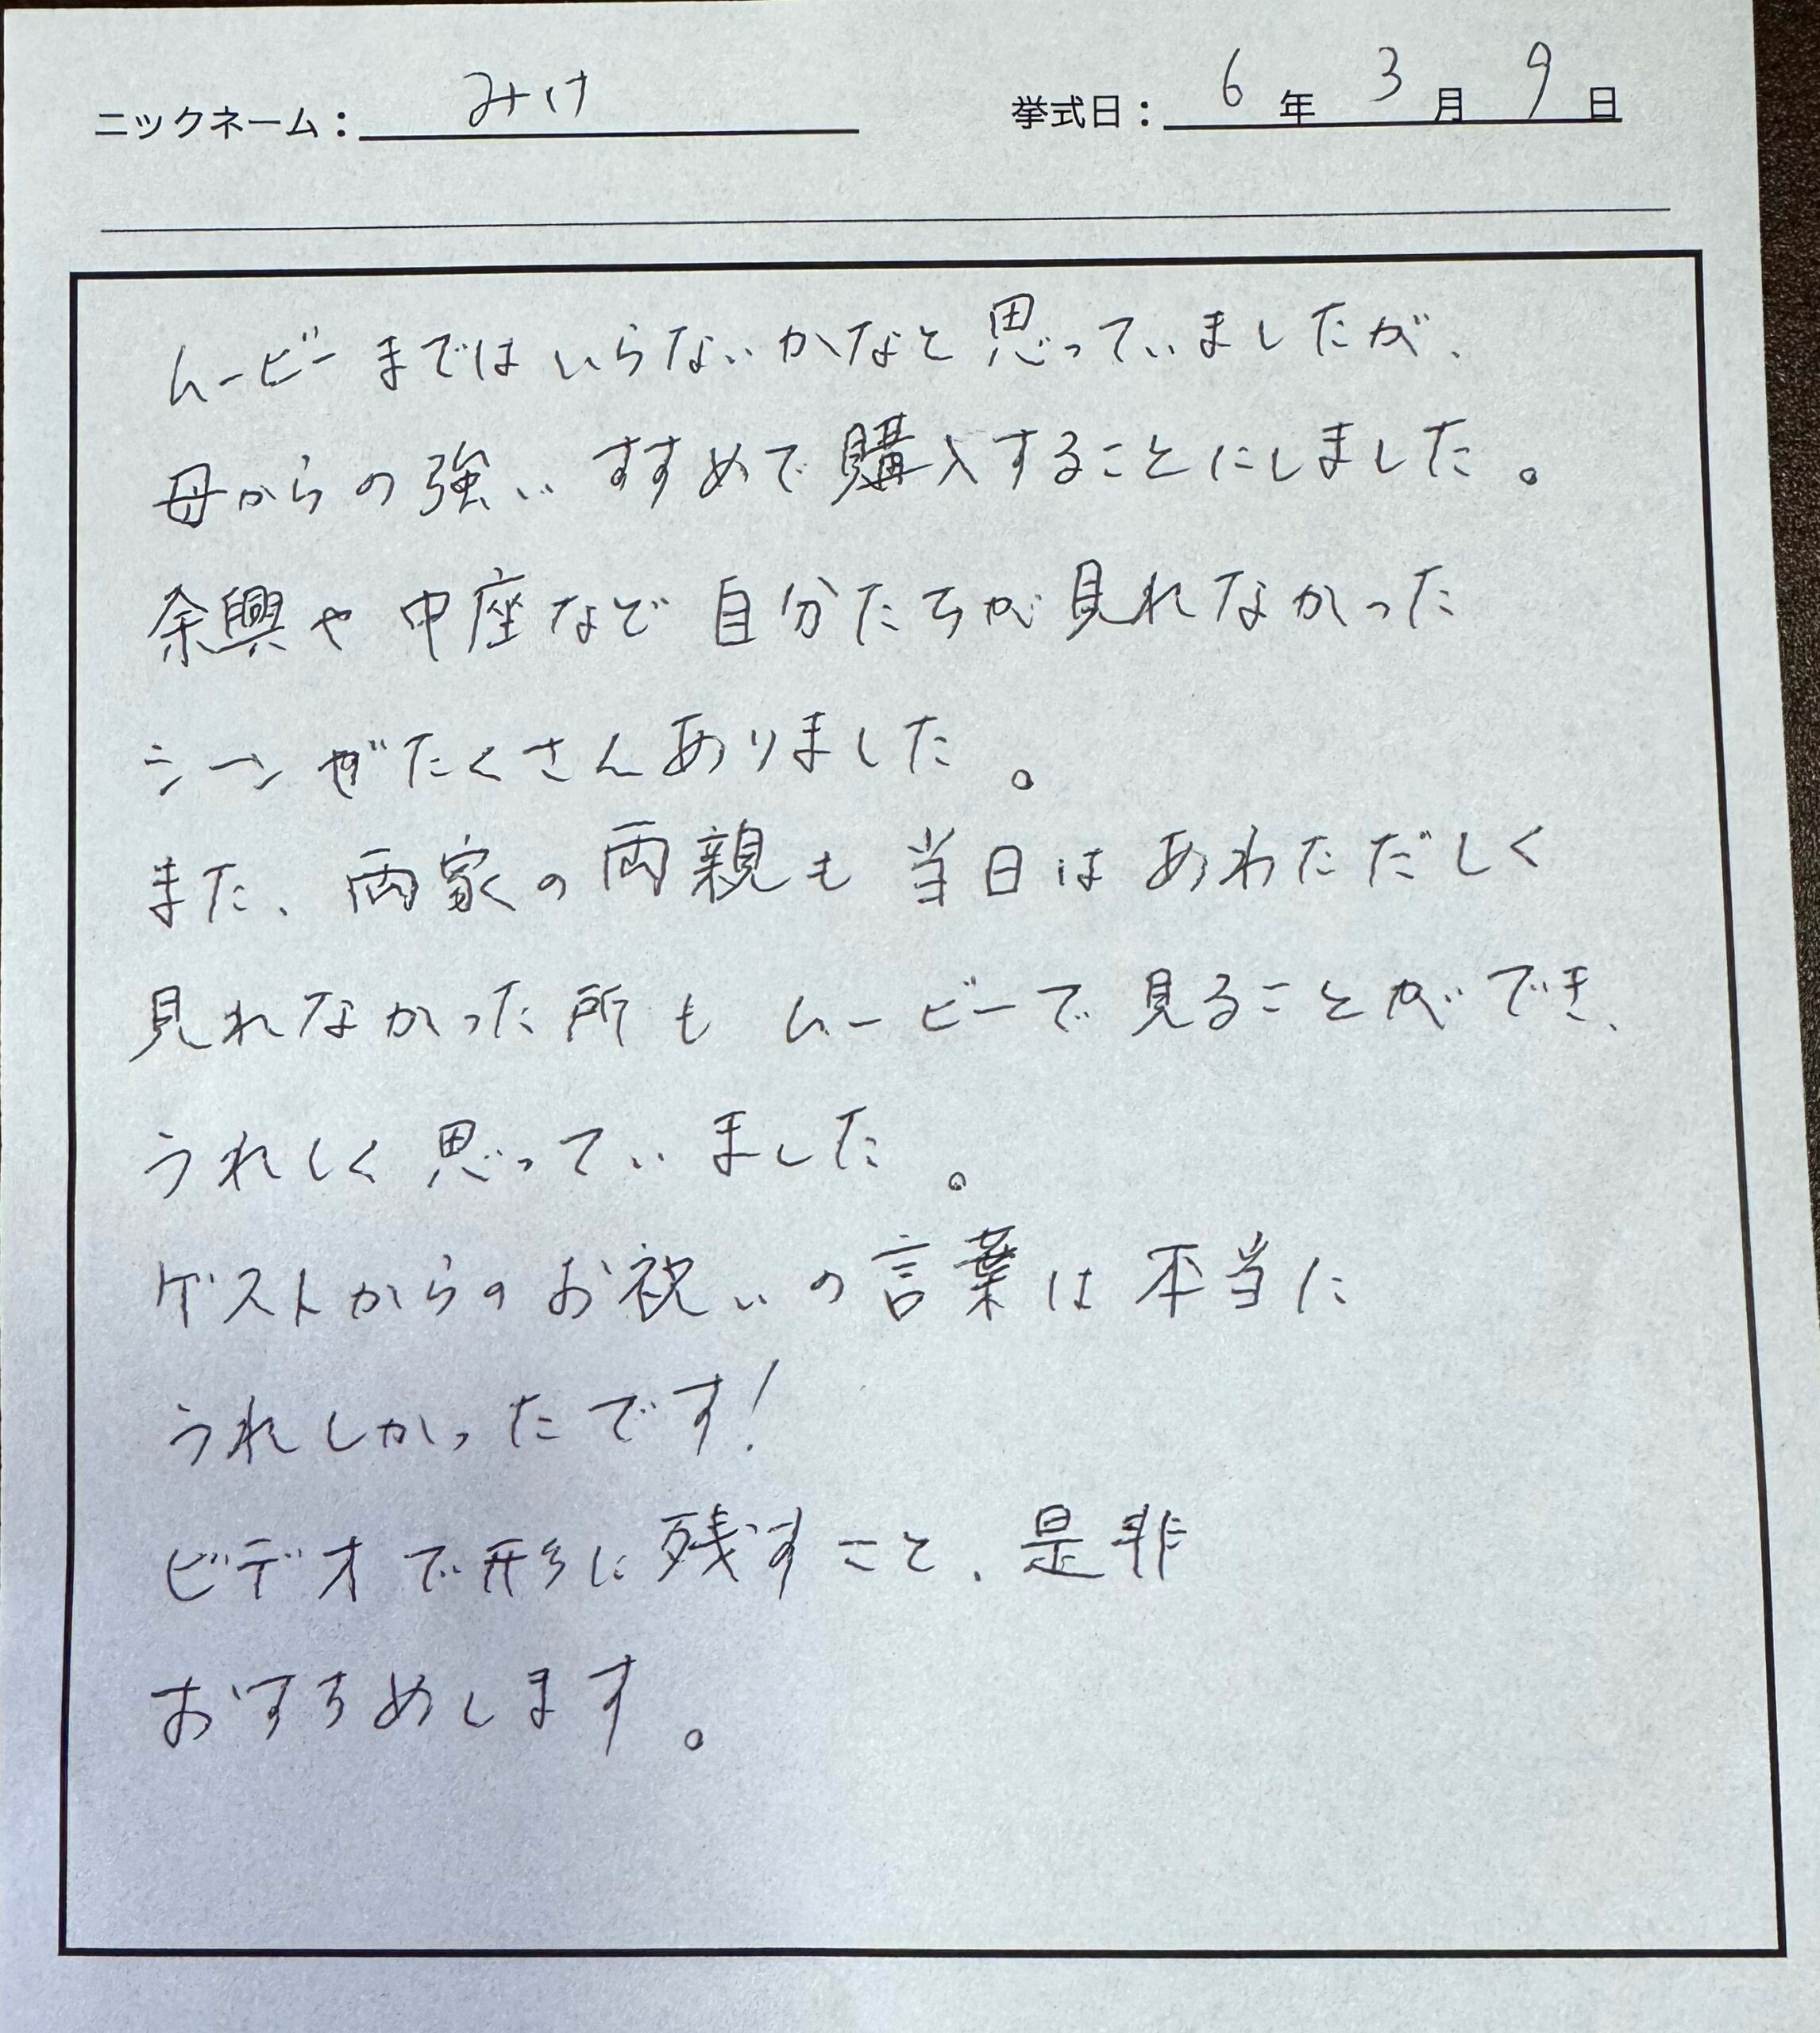 ニックネーム： みけ 挙式日： 6 年 3 月 9 日
ムービーまではいらないかなと思っていましたが、
母からの強いすすめで購入することにしました。
余興や中座など自分たちが見れなかった
シーンがたくさんありました。
また、両家の両親も当日はあわただしく
見れなかった所もムービーで見ることができ、
うれしく思っていました。
ゲストからのお祝いの言葉は本当に
うれしかったです!
ビデオで形に残すこと、是非
おすすめします。